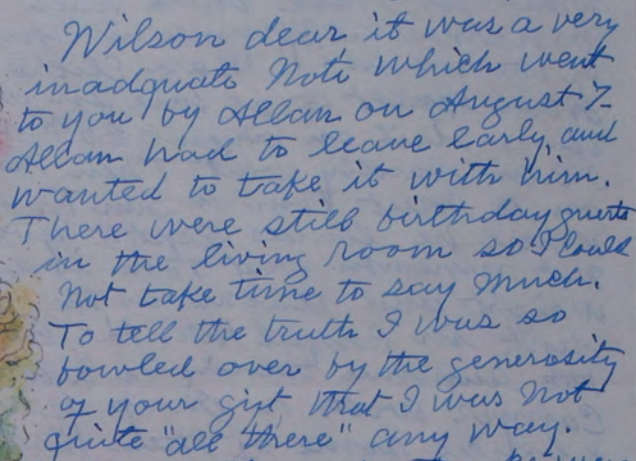 Wilson dear, it was a very
inadquate Note which went
to you by Allan on August 7-
Allan had to leave early, and
wanted to take it with him.
There were still birthday guests
in the living room so I could
not take time to say much.
To tell the truth I was so
bowled over by the generosity
of your gift that I was not
quite "all there" any way.